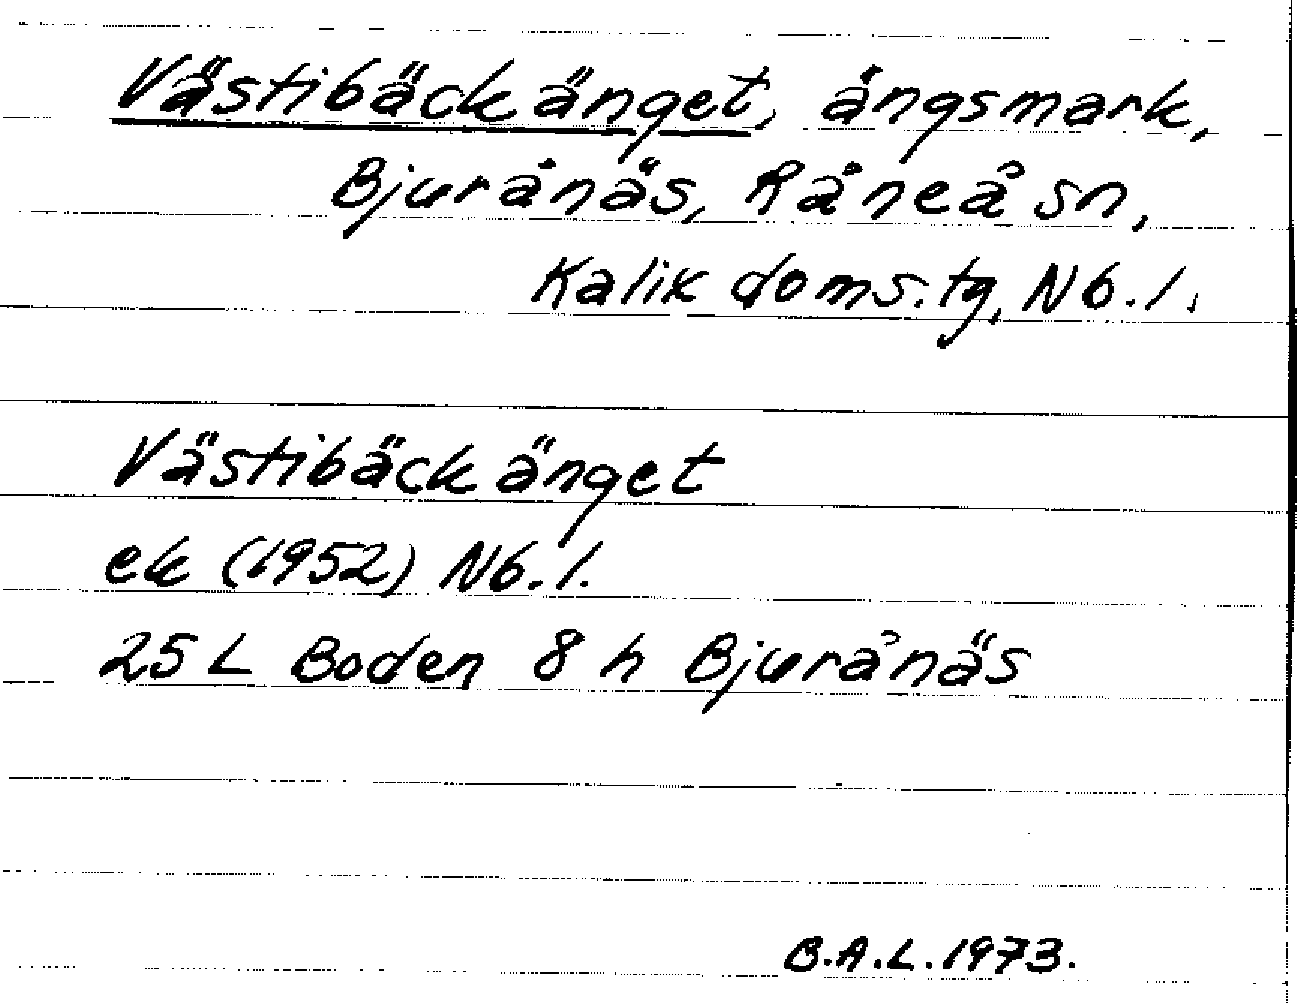 Västibäckänget, ängsmark,
Bjurånäs, Råneå sn,
Kalix doms.tg, Nb.l.
Västibäckänget
ek (1952) Nb.l.
25 L Boden 8 h Bjurånäs
B.A.L. 1973.